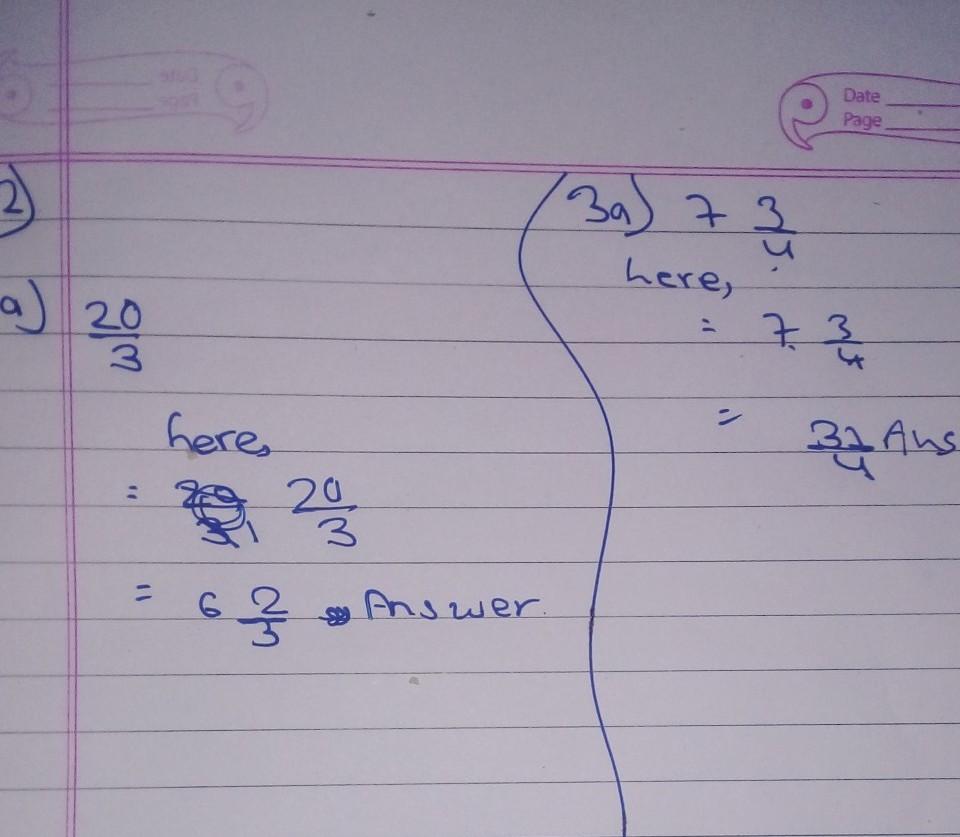 Date
Page
2)
a) 20/3
here,
= 20/3
= 6 2/3 Answer.
3a) 7 3/4
here,
= 7 3/4
= 31/4 Ans